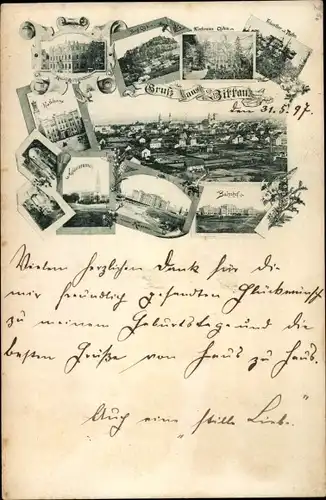 Gruß aus Zittau
den 31.5.97.
Bahnhof
Vielen herzlichen Dank für die
mir freundlich gesandten Glückwünsche
zu meinem Geburtstage und die
besten Grüße von Haus zu Haus.
Auch eine "stille Liebe."